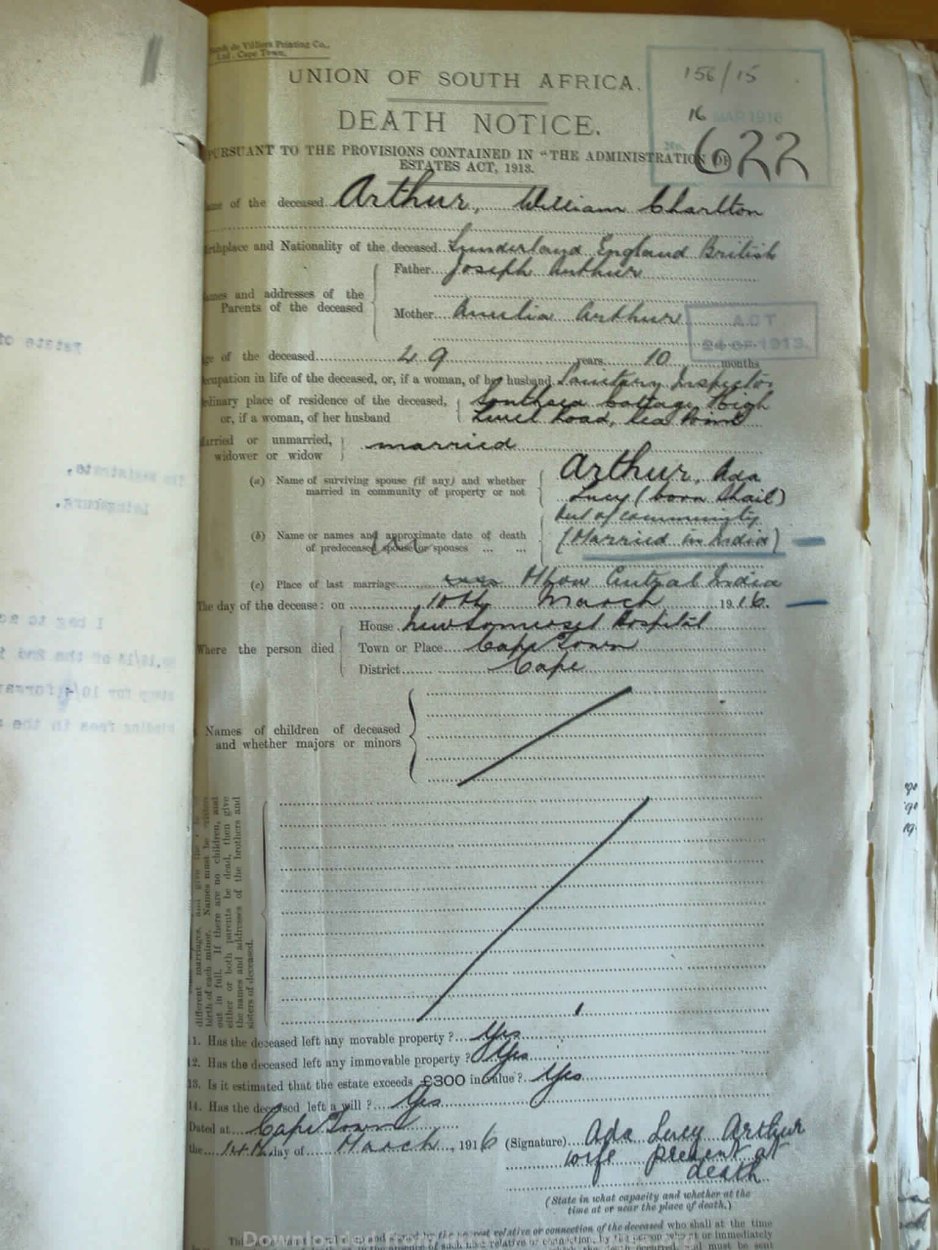 de Villiers Printing Co.,
Ltd. Cape Town.
UNION OF SOUTH AFRICA.
156/15
16 MAR 1916
No. 622
DEATH NOTICE.
PURSUANT TO THE PROVISIONS CONTAINED IN "THE ADMINISTRATION OF
ESTATES ACT, 1913.
ame of the deceased Arthur, William Charlton
irthplace and Nationality of the deceased Sunderland England British
Father Joseph Arthur
ames and addresses of the
Parents of the deceased
Mother Amelia Arthur
ACT
24 OF 1913.
ge of the deceased 49 years 10 months
ccupation in life of the deceased, or, if a woman, of her husband Sanitary Inspector
rdinary place of residence of the deceased, Southsea Cottage, High
or, if a woman, of her husband Level Road, Sea Point
arried or unmarried,
widower or widow married
(a) Name of surviving spouse (if any) and whether
married in community of property or not
Arthur, Ada
Lucy (born Shail)
out of community
(b) Name or names and approximate date of death
of predeceased spouse or spouses ... ...
(Married in India)
(c) Place of last marriage Mhow Central India
The day of the decease: on 10th March 1916.
House New Somerset Hospital
Where the person died Town or Place Cape Town
District Cape
Names of children of deceased
and whether majors or minors
different marriages, and give the
birth of each minor. Names must be written
out in full. If there are no children, and
either or both parents be dead, then give
the names and addresses of the brothers and
sisters of deceased.
1. Has the deceased left any movable property? Yes
12. Has the deceased left any immovable property? Yes
13. Is it estimated that the estate exceeds £300 in value? Yes
14. Has the deceased left a will? Yes
Dated at Cape Town
the 14th day of March, 1916 (Signature) Ada Lucy Arthur
wife present at
death
(State in what capacity and whether at the
time at or near the place of death.)
nearest relative or connection of the deceased who shall at the time
Downloaded from